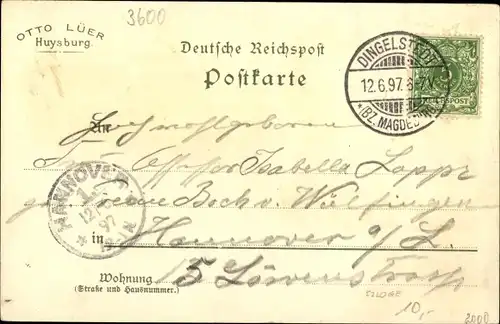 3600
OTTO LÜER
Huysburg.
Deutsche Reichspost
Postkarte
DINGELSTEDT
12.6.97. 6-7N
*(BZ. MAGDEBURG)
REICHSPOST
An Hochwohlgeboren
Frau Assessor Isabella Lappe
HANNOVER
12
97
geb. Freiin Bock v. Wülfingen
in Hannover
Wohnung 15 Löwenstrasse
(Straße und Hausnummer.)
10,-
2000